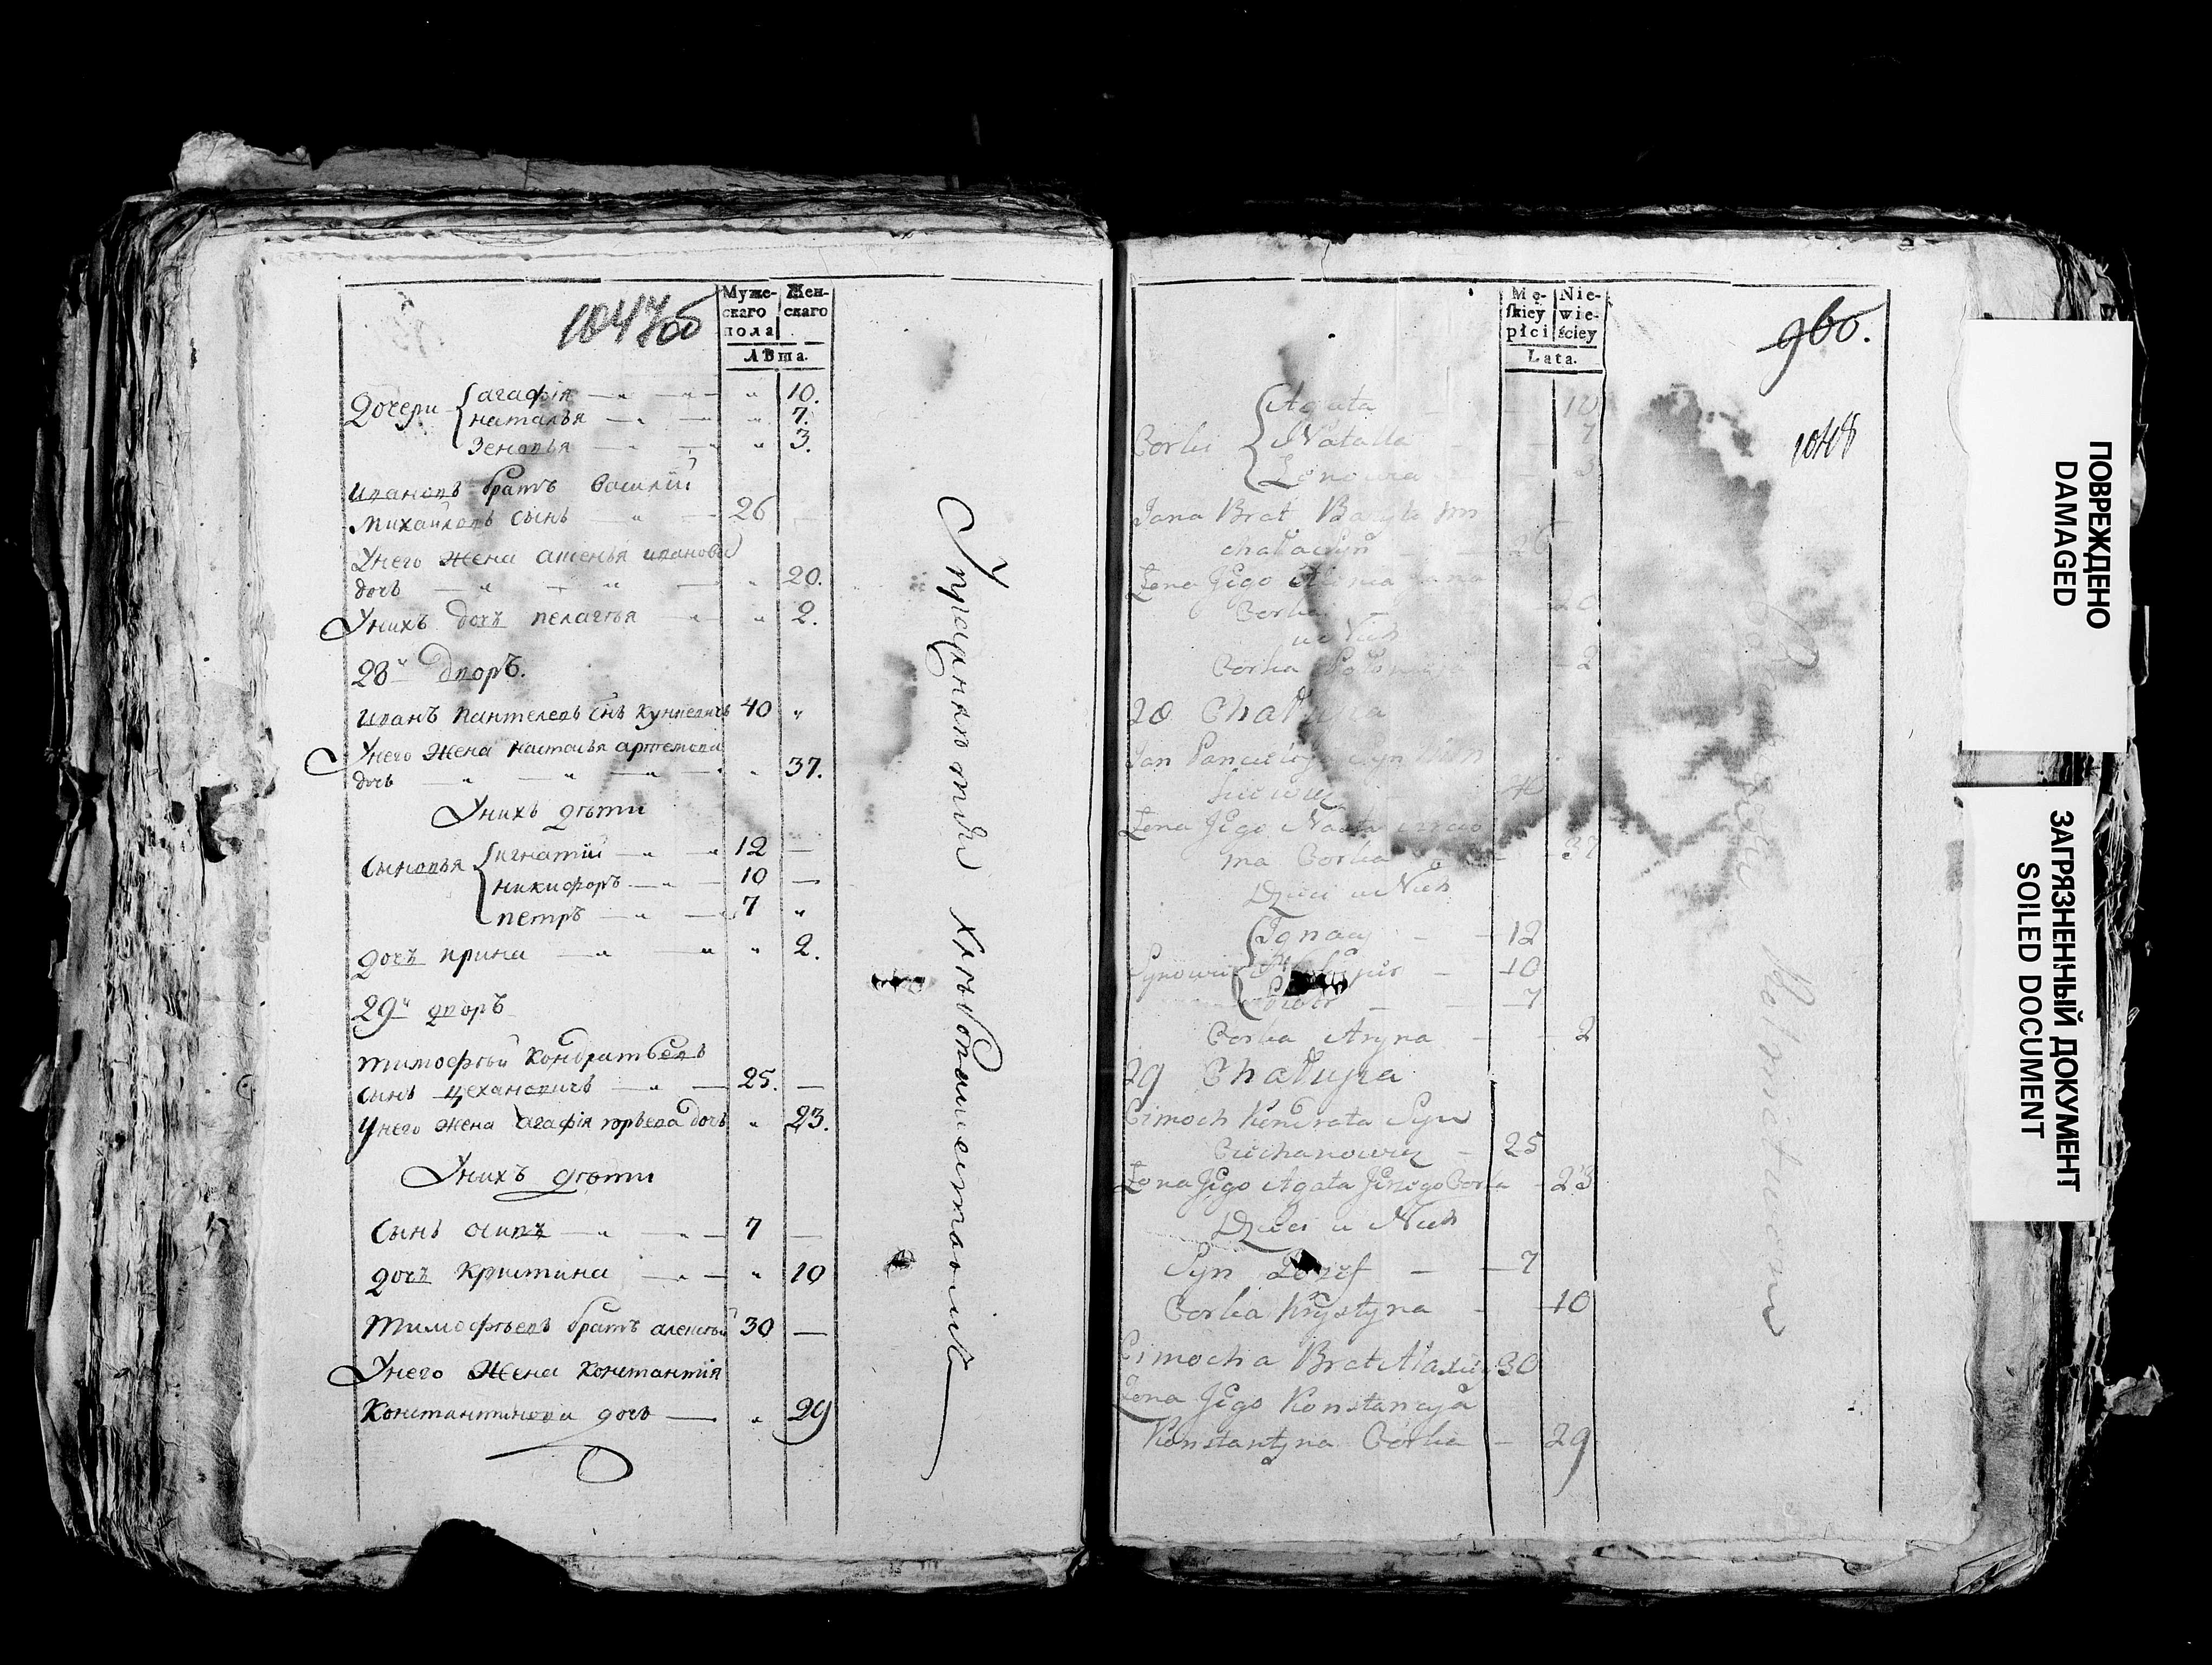 1047об
Муже-
скаго
пола
Жен-
скаго
Лѣта.
Дочери
агафія 10.
наталья 7.
Зеновья 3.
Ивановъ братъ Василій
Михайловъ сынъ 26
Унего жена аѳенья иванова
дочь 20.
Унихъ дочь пелагѣя 2.
28й дворъ.
Иванъ Пантелеевъ снъ 40
Унего Жена Насталья артемова
дочь 37.
Унихъ дѣти
Сыновья
игнатій 12
никифоръ 10
петръ 7
дочь ирина 2.
29й дворъ
тимофѣй Кондратьевъ
сынъ Цехановичъ 25.
Унего жена агафія дочь 23.
Унихъ дѣти
Сынъ осипъ 7
дочь Кристина 10
Тимофѣевъ братъ алексѣй 30
Унего Жена Константія
Константинова дочь 29
Mę-
skiey
płci
Nie-
wie-
ściey
Lata.
960.
1048
Corki
Agata 10
Natalla 7
Zenowia 3
Jana Brat
syn 26
Żena Jego
Corka 20
u Nich
Corka 2
28 Chałupa
Jan syn
40
Żena Jego Nasta
Corka 37
Dzieci u Nich
Synowie
Ignacy 12
10
Piotr 7
Corka Aryna 2
29 Chałupa
Cimoch Kondrata Syn
Ciechanowicz 25
Żona Jego Agata Corka 23
Dzieci u Nich
Syn Jozef 7
Corka Krystyna 10
Cimocha Brat Alaxiey 30
Żena Jego Konstancya
Konstantyna Corka 29
ПОВРЕЖДЕНО
DAMAGED
ЗАГРЯЗНЕННЫЙ ДОКУМЕНТ
SOILED DOCUMENT